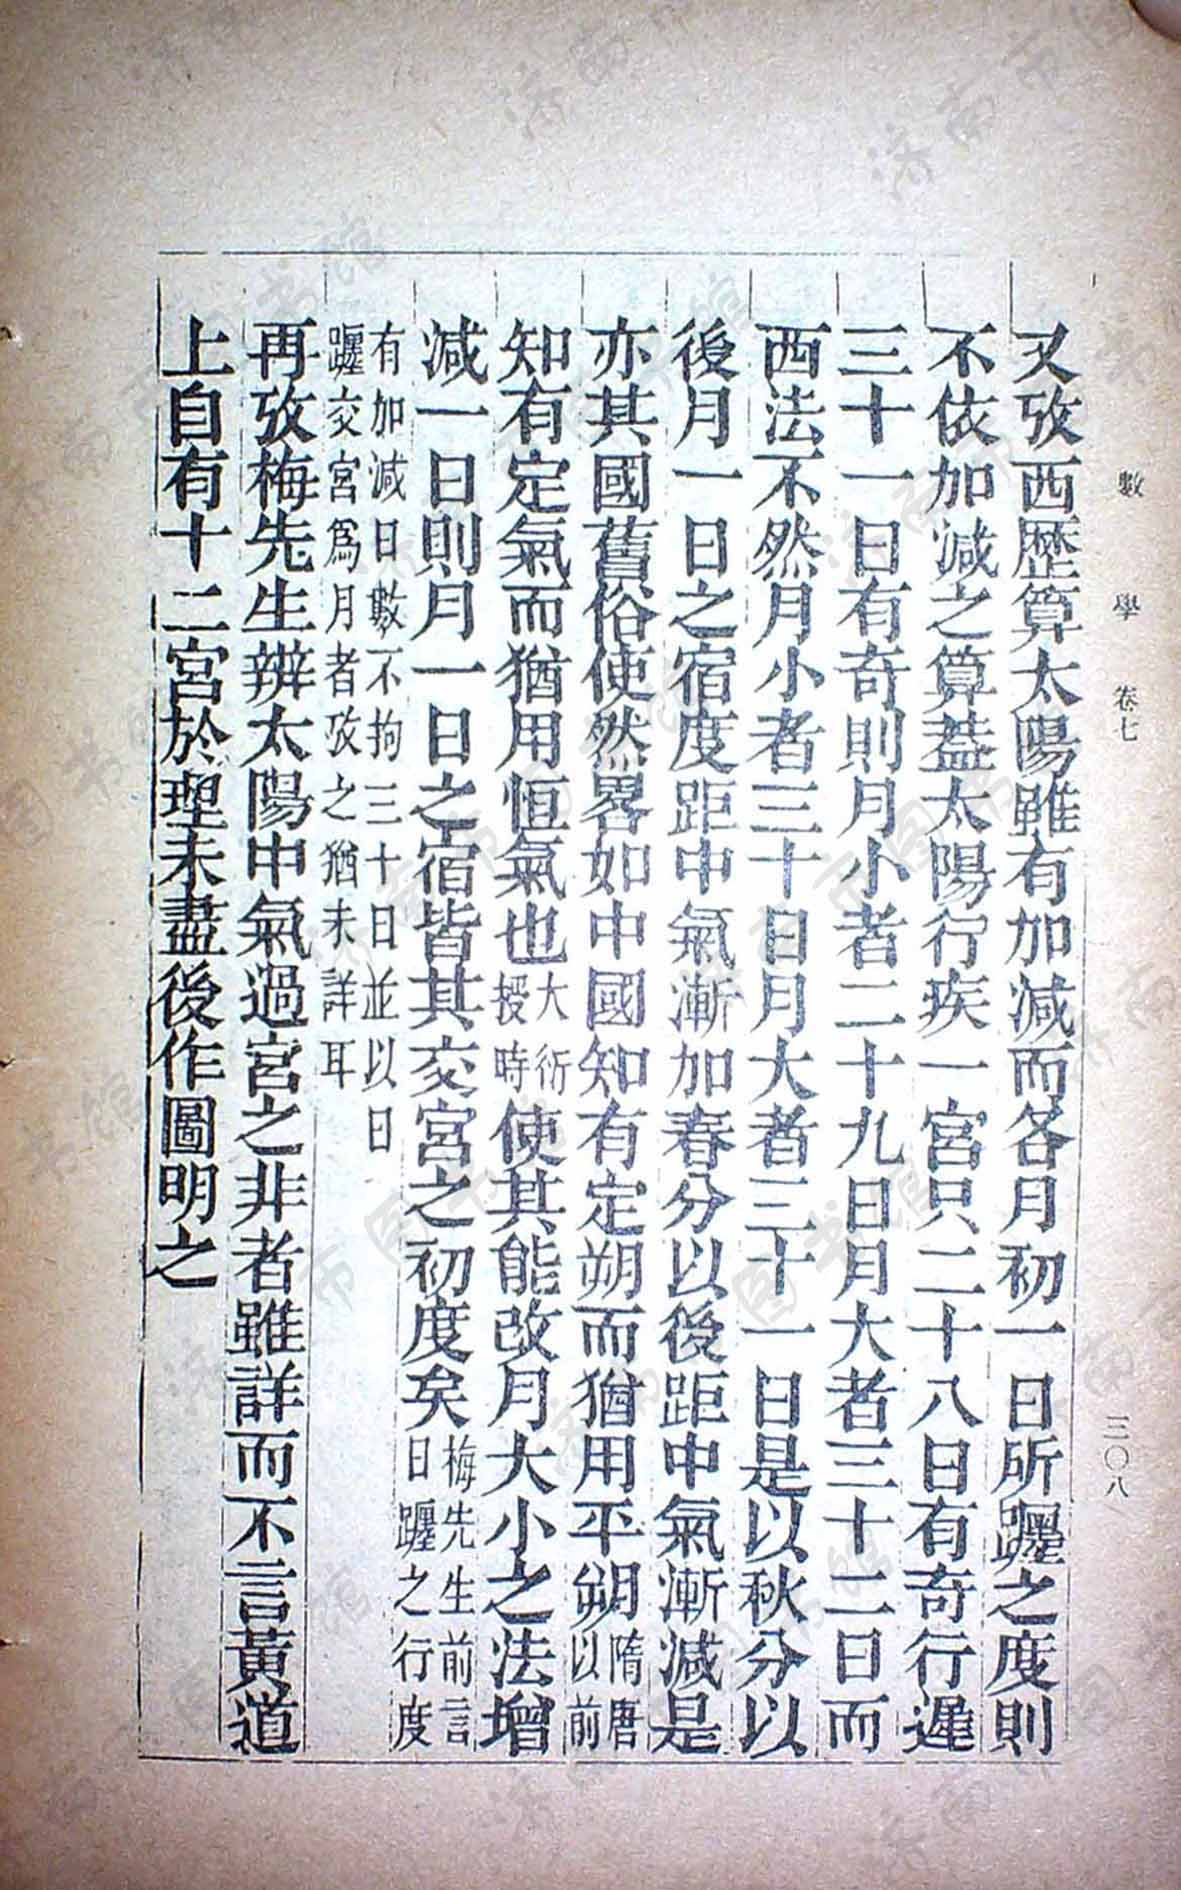 數學 卷七
三〇八
又攷西歴算太陽雖有加減而各月初一日所躔之度則
不依加減之算葢太陽行疾一宮只二十八日有奇行遲
三十一日有奇則月小者二十九日月大者三十二日而
西法不然月小者三十日月大者三十一日是以秋分以
後月一日之宿度距中氣漸加春分以後距中氣漸減是
亦其國舊俗使然畧如中國知有定朔而猶用平朔隋唐以前
知有定氣而猶用恒氣也大衍授時使其能改月大小之法增
減一日則月一日之宿皆其交宮之初度矣梅先生前言日躔之行度
有加減日數不拘三十日並以日
躔交宮爲月者攷之猶未詳耳
再攷梅先生辨太陽中氣過宮之非者雖詳而不言黃道
上自有十二宮於理未盡後作圖明之
济南市图书馆